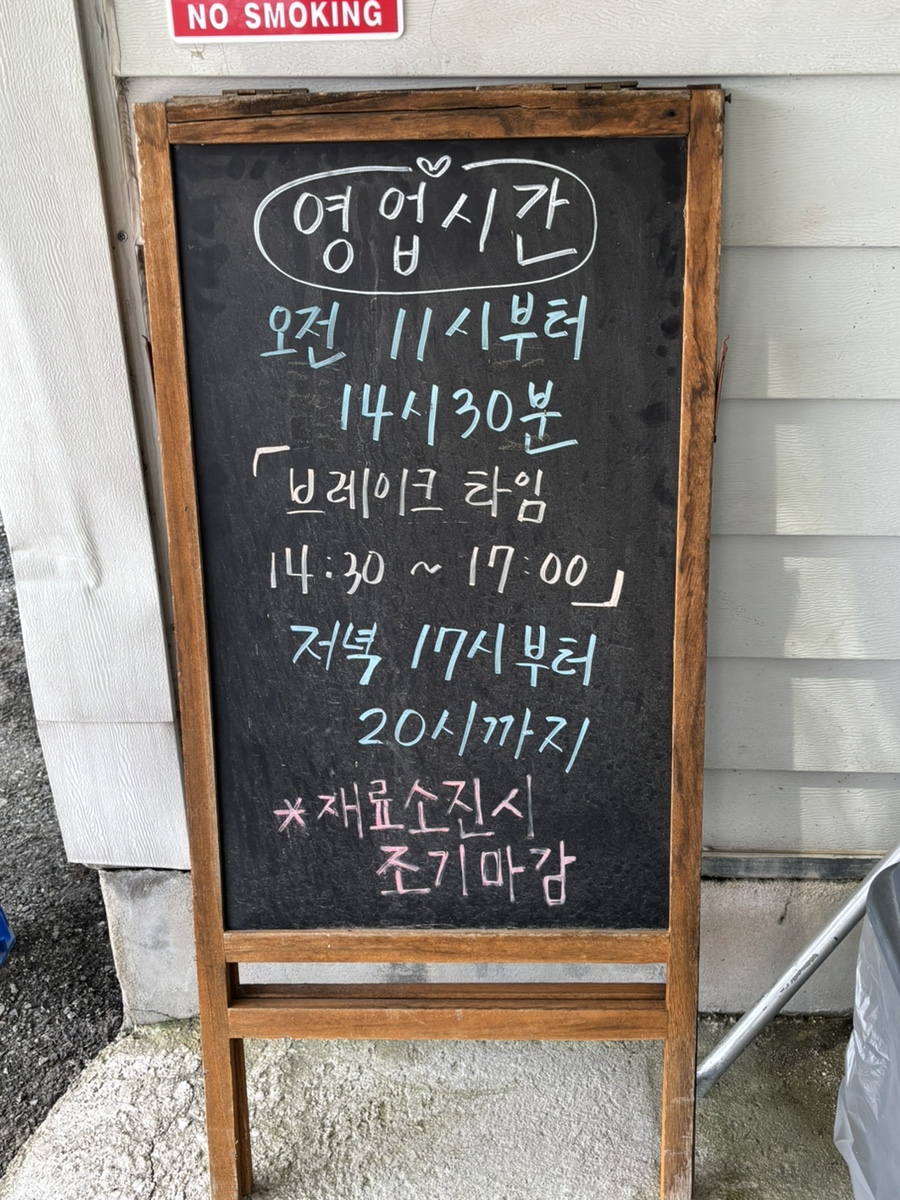 NO SMOKING
영업시간
오전 11시부터
14시30분
「브레이크 타임
14:30 ~ 17:00」
저녁 17시부터
20시까지
*재료소진시
조기마감